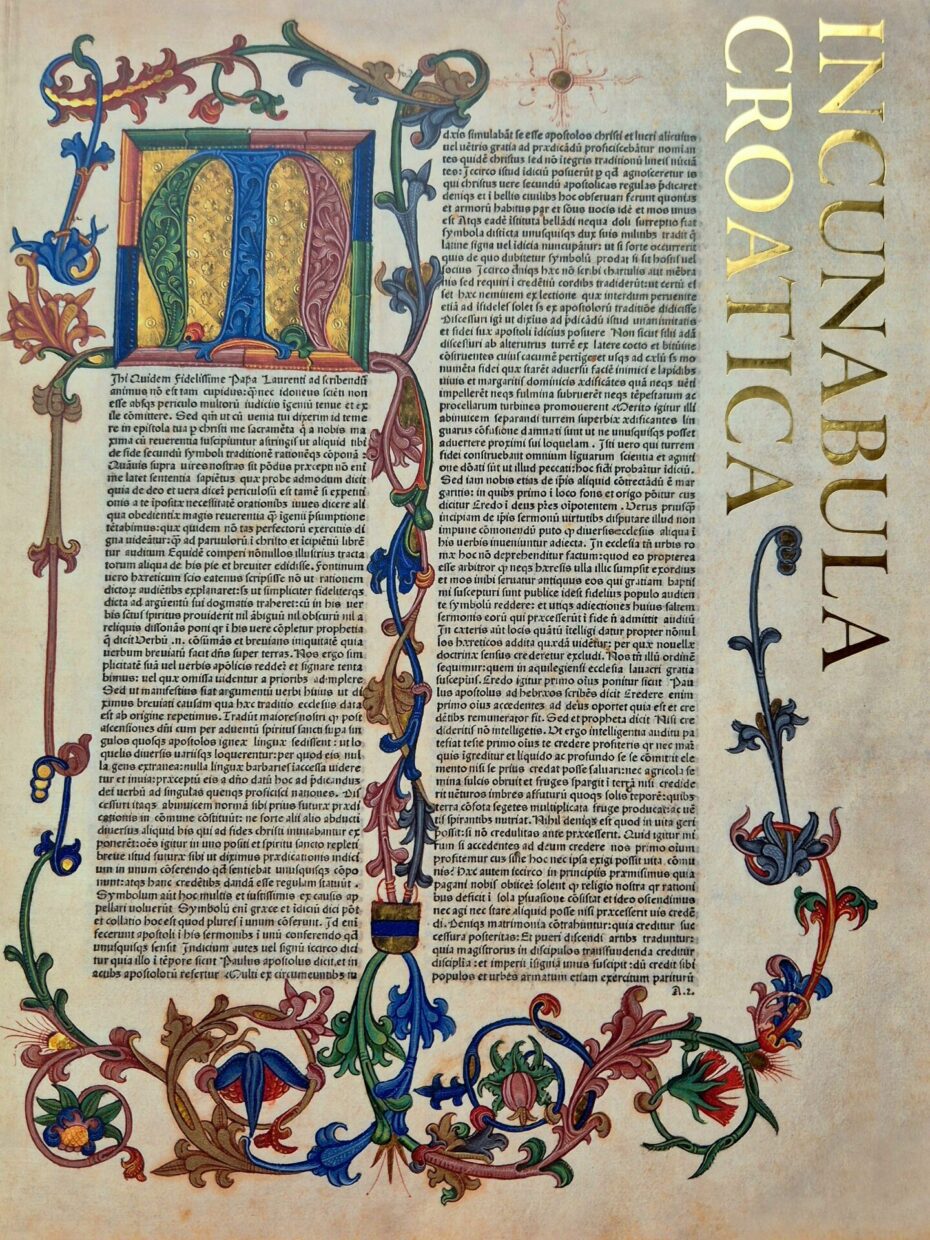 INCUNABULA
CROATICA
M
Ihi Quidem fidelissime Papa Laurenti ad scribendū
animus nō est tam cupidus: q̄ nec idoneus sciēti non
esse absqs periculo multorū iudiciis igeniū tenue et ex
ile cōmittere. Sed qm̄ ut cū uenia tui dixerim id teme
re in epistola tua p christi me sacramēta q̄ a nobis ma
xima cū reuerentia suscipiuntur astringis ut aliquid tibi
de fide secundū symboli traditionē rationēqs cōponā:
Quāuis supra uires nostras sit pōdus præcepti nō eni
me latet sententia sapiētus quæ probe admodum dicit
quia de deo et uera dicere periculosū est tamē si expetiti
onis a te iposite necessitatē orationibus iuues dicere ali
qua obedientiæ magis reuerentia q̄ igenii præsumptione
tētabimus: quæ quidem nō tā perfectorū exercitiis di
gna uideātur: q̄ ad paruulorū i christo et icipiētiū librē
tur auditum Equidē comperi nōnullos illustrium tracta
torum aliqua de his pie et breuiter edidisse. Fontinum
uero hæreticum scio eatenus scripsisse nō ut rationem
dictorꝝ audiētibus explanaret: sed ut simpliciter fideliterqs
dicta ad argūentū sui dogmatis traheret: cū in his uer
bis sctus spiritus prouiderit nil ābiguū nil obscurū nil a
reliquis dissonās poni qr i his uere cōpletur prophetia
q̄ dicit Verbū .n. cōsumās et breuians in equitate quia
uerbum breuiatū faciet dn̄s super terras. Nos ergo sim
plicitatē suā uel uerbis apōlicis reddēe et signare tenta
bimus: uel quæ omissa uidentur a prioribus adimplere
Sed ut manifestius fiat argumentū uerbi huius ut di
ximus breuiati causam qua hæc traditio ecclesiis data
est ab origine repetimus. Tradūt maiores nostri q̄ post
ascensionē dn̄i cum per aduentū spiritus sancti supra sin
gulos quosqs apostolos igneæ linguæ sedissent: ut lo
quelis diuersis uariisqs loquerentur: per quod eis nul
la gens extranea: nulla linguæ barbaries iaccessa uidere
tur et inuia: præceptū eis a dn̄o datū hoc ad p̄dicandum
dei uerbū ad singulas quenqs proficisci nationes. Dis
cessuri itaqs abinuicem normā sibi prius futuræ prædi
cationis in cōmune cōstituūt: ne forte alii alio abducti
diuersus aliquid his qui ad fidē christi inuitabantur ex
ponerēt: oēs igitur in uno positi et spiritu sancto repleti
breue istud futuræ sibi ut diximus prædicationis indici
um in unum cōferendo qd̄ sentiebat unusquisqs cōpo
nunt: atqs hanc credētibus dandā esse regulam statuūt.
Symbolum aūt hoc multis et iustissimis ex causis ap
pellari uoluerūt Symbolū eni græce et idiciū dici pōt
et collatio hoc est quod plures i unum cōferunt. Id eni
fecerunt apostoli i his sermonibus i unū conferendo qd̄
unusquisqs sensit Indicium autem uel signū iccirco dici
tur quia illo i tēpore sicut Paulus apostolus dicit, et in
actibus apostolorū refertur Multi ex circumeuntibus iu
dæis simulabāt se esse apostolos christi et lucri alicuius
uel uētris gratia ad prædicādū proficiscebātur nominan
tes quidē christus sed nō itegris traditionū lineis nūcia
tes: Iccirco istud idiciū posuerūt p qd̄ agnosceretur is
qui christus uere secundū apostolicas regulas p̄dicaret
deniqs et i bellis ciuilibus hoc obseruari ferunt quoniam
et armorū habitus par et sonus uocis idē et mos unus
est Atqs eadē istituta bellādi nequa doli surreptio fiat
symbola disticta unusquisqs dux suis militibus tradit q̄
latine signa uel idicia nuncupātur: ut si forte occurrerit
quis de quo dubitetur symbolū prodat si sit hostis uel
socius Iccirco deniqs hæc nō scribi chartulis aut mēbra
nis sed requiri i credētiū cordibus tradiderūt: ut certū es
set hæc neminem ex lectione quæ interdum peruenire
etiā ad ifideles solet sed ex apostolorū traditiōe didicisse
Discessuri igitur ut diximus ad p̄dicādū istud unanimitatis
et fidei suæ apostoli idicius posuere Non sicut filii adā
discessuri ab alterutrus turrē ex latere cocto et bitumine
cōstruentes cuius cacumē pertigeret usqs ad cælū sed mo
numēta fidei quæ starēt aduersus faciē inimici e lapidibus
uiuis et margaritis dominicis ædificātes quā neqs uēti
impellerēt neqs fulmina subruerēt neqs tēpestatum ac
procellarum turbines promouerent Merito igitur illi
abinuicem separandi turrem superbiæ ædificantes lin
guarus cōfusione damnati sunt ut ne unusquisqs posset
aduertere proximi sui loquelam. Isti uero qui turrem
fidei construebant omnium liguarum scientia et agniti
one donati sūt ut illud peccati: hoc fidei probaretur idiciū.
Sed iam nobis etiam de ipsis aliquid cōtrectādū ē mar
garitis: in quibus primo i loco fons et origo pōitur cum
dicitur Credo i deus patres oipotentem. Verus priusqs
incipiam de ipsis sermonū uirtutibus disputare illud non
impune cōmonendū puto q̄ diuersis ecclesiis aliqua i
his uerbis inueniuntur adiecta. In ecclesia tn̄ urbis ro
mæ hoc nō deprehenditur factum: quod eo propterea
esse arbitror q̄ neqs hæresis ulla illic sumpsit exordius
et mos inibi seruatur antiquus eos qui gratiam baptis
mi suscepturi sunt publice idest fidelium populo audien
te symbolū reddere: et utiqs adiectiones huius saltem
sermonis eorū qui præcesserūt i fide nō admittit auditū
In cæteris aūt locis quātū itelligi datur propter nonul
los hæreticos addita quædā uidētur: per quæ nouellæ
doctrinæ sensus crederetur excludi. Nos tn̄ illū ordinē
sequimur: quem in aquilegiensi ecclesia lauacri gratia
suscepius. Credo igitur primo oius ponitur sicut Pau
lus apostolus ad hebræos scribēs dicit Credere enim
primo oius accedentes ad deus oportet quia est et cre
dētibus remunerator fit. Sed et propheta dicit Nisi cre
dideritis nō intelligetis. Ut ergo intelligentia auditui pa
tefiat teste primo oius te credere profiteris qr nec mare
quis igreditur et liquido ac profundo se se cōmittit ele
mento nisi se prius credat posse saluari: nec agricola se
mina sulcis obruit et fruges spargit i terrā nisi credide
rit uēturos imbres affuturū quoqs solis teporē: quibus
terra cōfota segetes multiplicata fruge producat: ac uē
tis spirantibus nutriat. Nihil deniqs est quod in uita geri
possit: si nō credulitas ante præcesserit. Quid igitur mi
rum si accedentes ad deum credere nos primo oium
profitemur cus sine hoc nec ipsa exigi possit uita cōmu
nis? Hæc autem iccirco in principiis præmisimus quia
pagani nobis obiicere solent q̄ religio nostra qr rationi
bus deficit i sola psuasione cōsistat et ideo ostendimus
nec agi nec stare aliquid posse nisi præcesserit uis crede
di. Deniqs matrimonia cōtrahūtur: quia creditur suc
cessura posteritas: Et pueri discendi artibus traduntur:
quia magistrorus in discipulos transfundenda creditur
disciplīa: et imperii isignia unus suscipit: dū credit sibi
populos et urbēs armatum etiam exercitum pariturū
A.2.